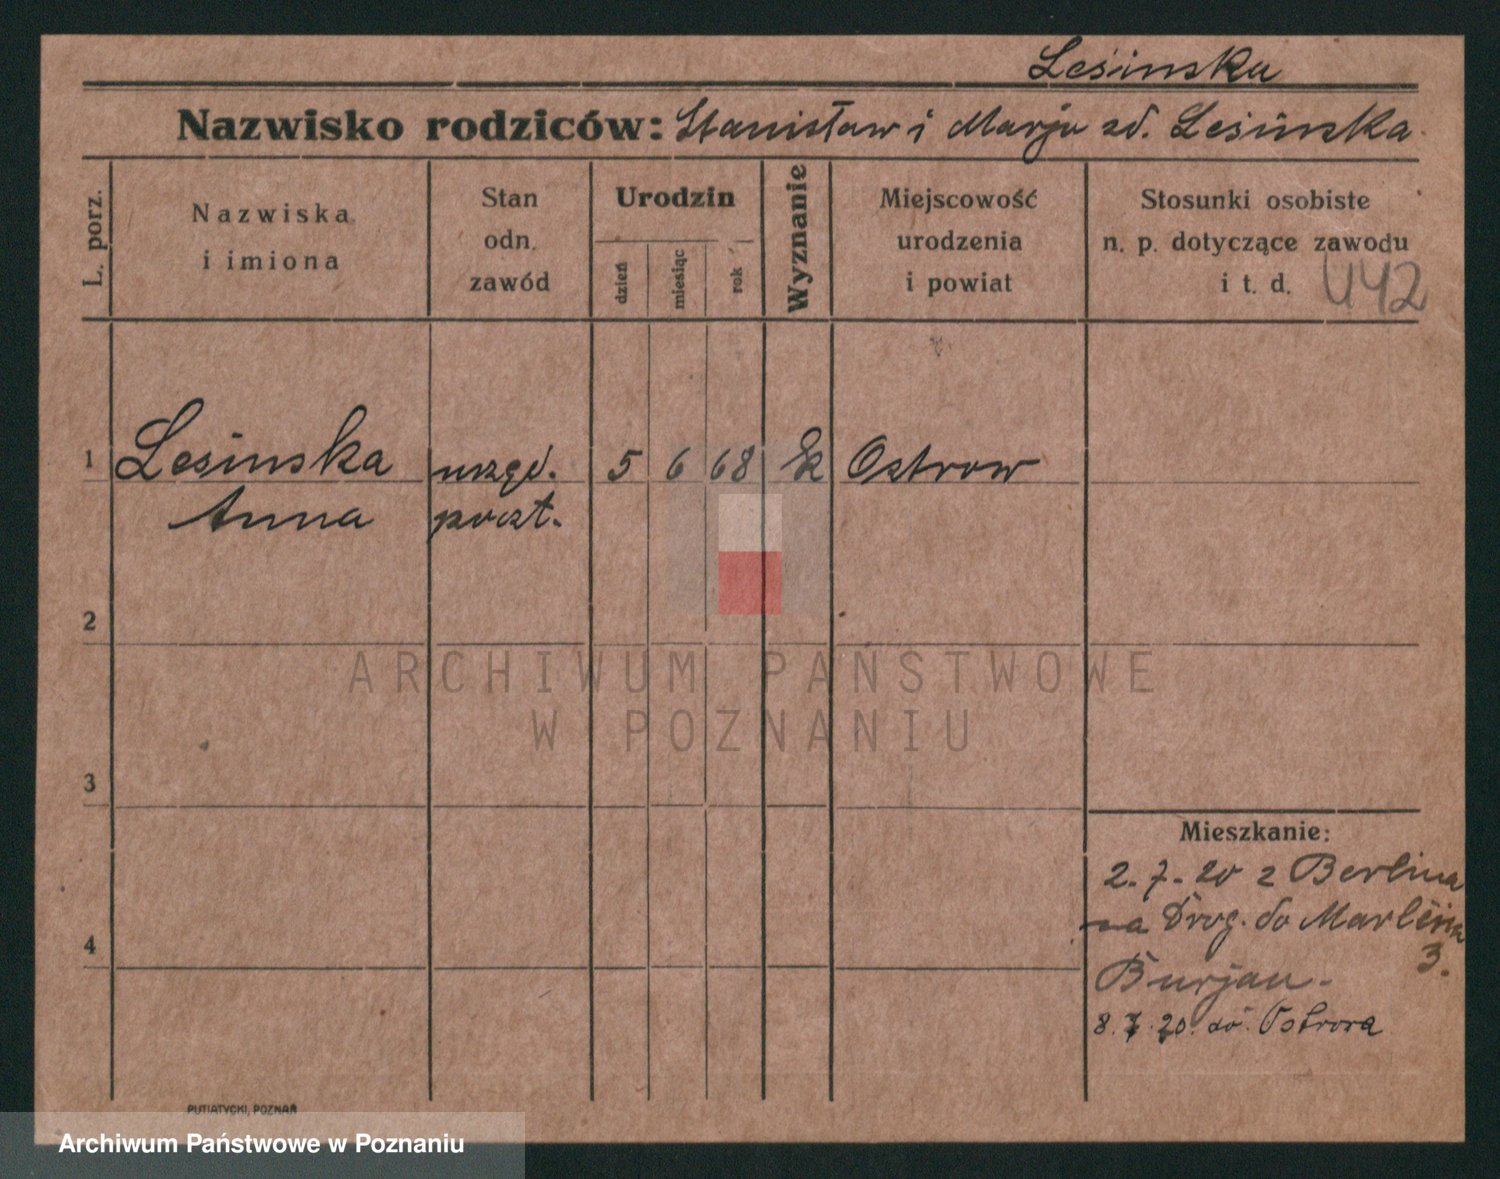 Lesińska
Nazwisko rodziców: Stanisław i Marja zd. Lesińska
L. porz.
Nazwiska
i imiona
Stan
odn.
zawód
Urodzin
dzień
miesiąc
rok
Wyznanie
Miejscowość
urodzenia
i powiat
Stosunki osobiste
n. p. dotyczące zawodu
i t. d.
442
1 Lesińska urzęd. 5 6 68 Ostrow
Anna poczt.
2
3
4
ARCHIWUM PAŃSTWOWE
W POZNANIU
Mieszkanie:
2.7.20 z Berlina
na Drog. do Marcina
3.
Burjan.
8.7.20. do Ostrowa
PUTIATYCKI, POZNAŃ
Archiwum Państwowe w Poznaniu